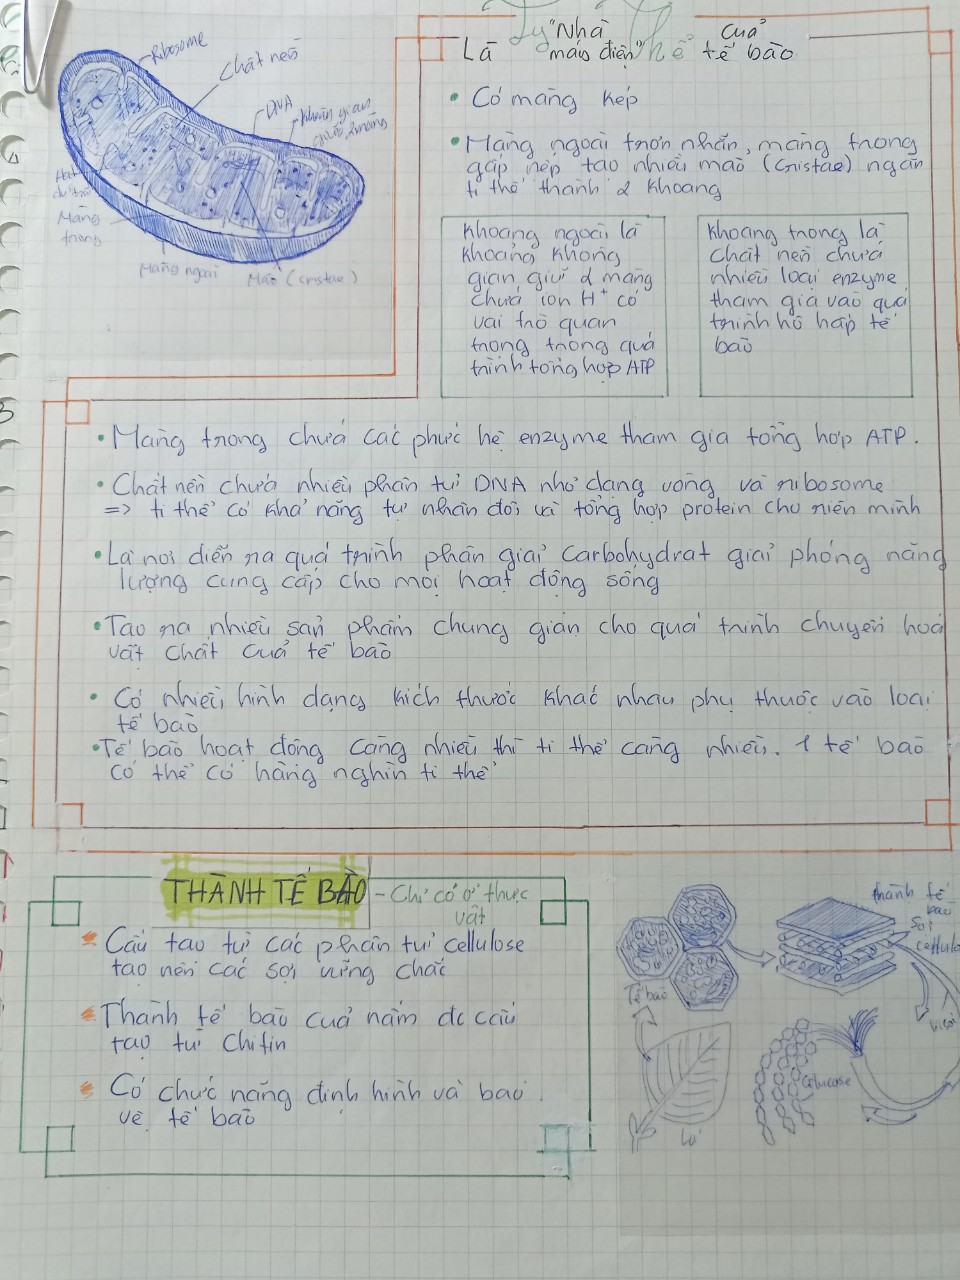 Ribosome
Chất nền
DNA
Khoảng gian
giữa 2 màng
Màng
trong
Màng ngoài
Mào (cristae)
Ty thể
Là "Nhà máy điện" của tế bào
• Có màng kép
• Màng ngoài trơn nhẵn, màng trong
gấp nếp tạo nhiều mào (cristae) ngăn
ti thể thành 2 khoang
Khoang ngoài là
khoảng không
gian giữ 2 màng
chứa ion H⁺ có
vai trò quan
trọng trong quá
trình tổng hợp ATP
Khoang trong là
chất nền chứa
nhiều loại enzyme
tham gia vào quá
trình hô hấp tế
bào
• Màng trong chứa các phức hệ enzyme tham gia tổng hợp ATP.
• Chất nền chứa nhiều phân tử DNA nhỏ dạng vòng và ribosome
=> ti thể có khả năng tự nhân đôi và tổng hợp protein cho riêng mình
• Là nơi diễn ra quá trình phân giải carbohydrat giải phóng năng
lượng cung cấp cho mọi hoạt động sống
• Tạo ra nhiều sản phẩm chung gian cho quá trình chuyển hoá
vật chất của tế bào
• Có nhiều hình dạng kích thước khác nhau phụ thuộc vào loại
tế bào
• Tế bào hoạt động càng nhiều thì ti thể càng nhiều. 1 tế bào
có thể có hàng nghìn ti thể
THÀNH TẾ BÀO - Chỉ có ở thực
vật
Cấu tạo từ các phân tử cellulose
tạo nên các sợi vững chắc
Thành tế bào của nấm đc cấu
tạo từ chitin
Có chức năng định hình và bảo
vệ tế bào
thành tế
bào
Sợi
cellulo
Tế bào
Vi sợi
Glucose
Lá